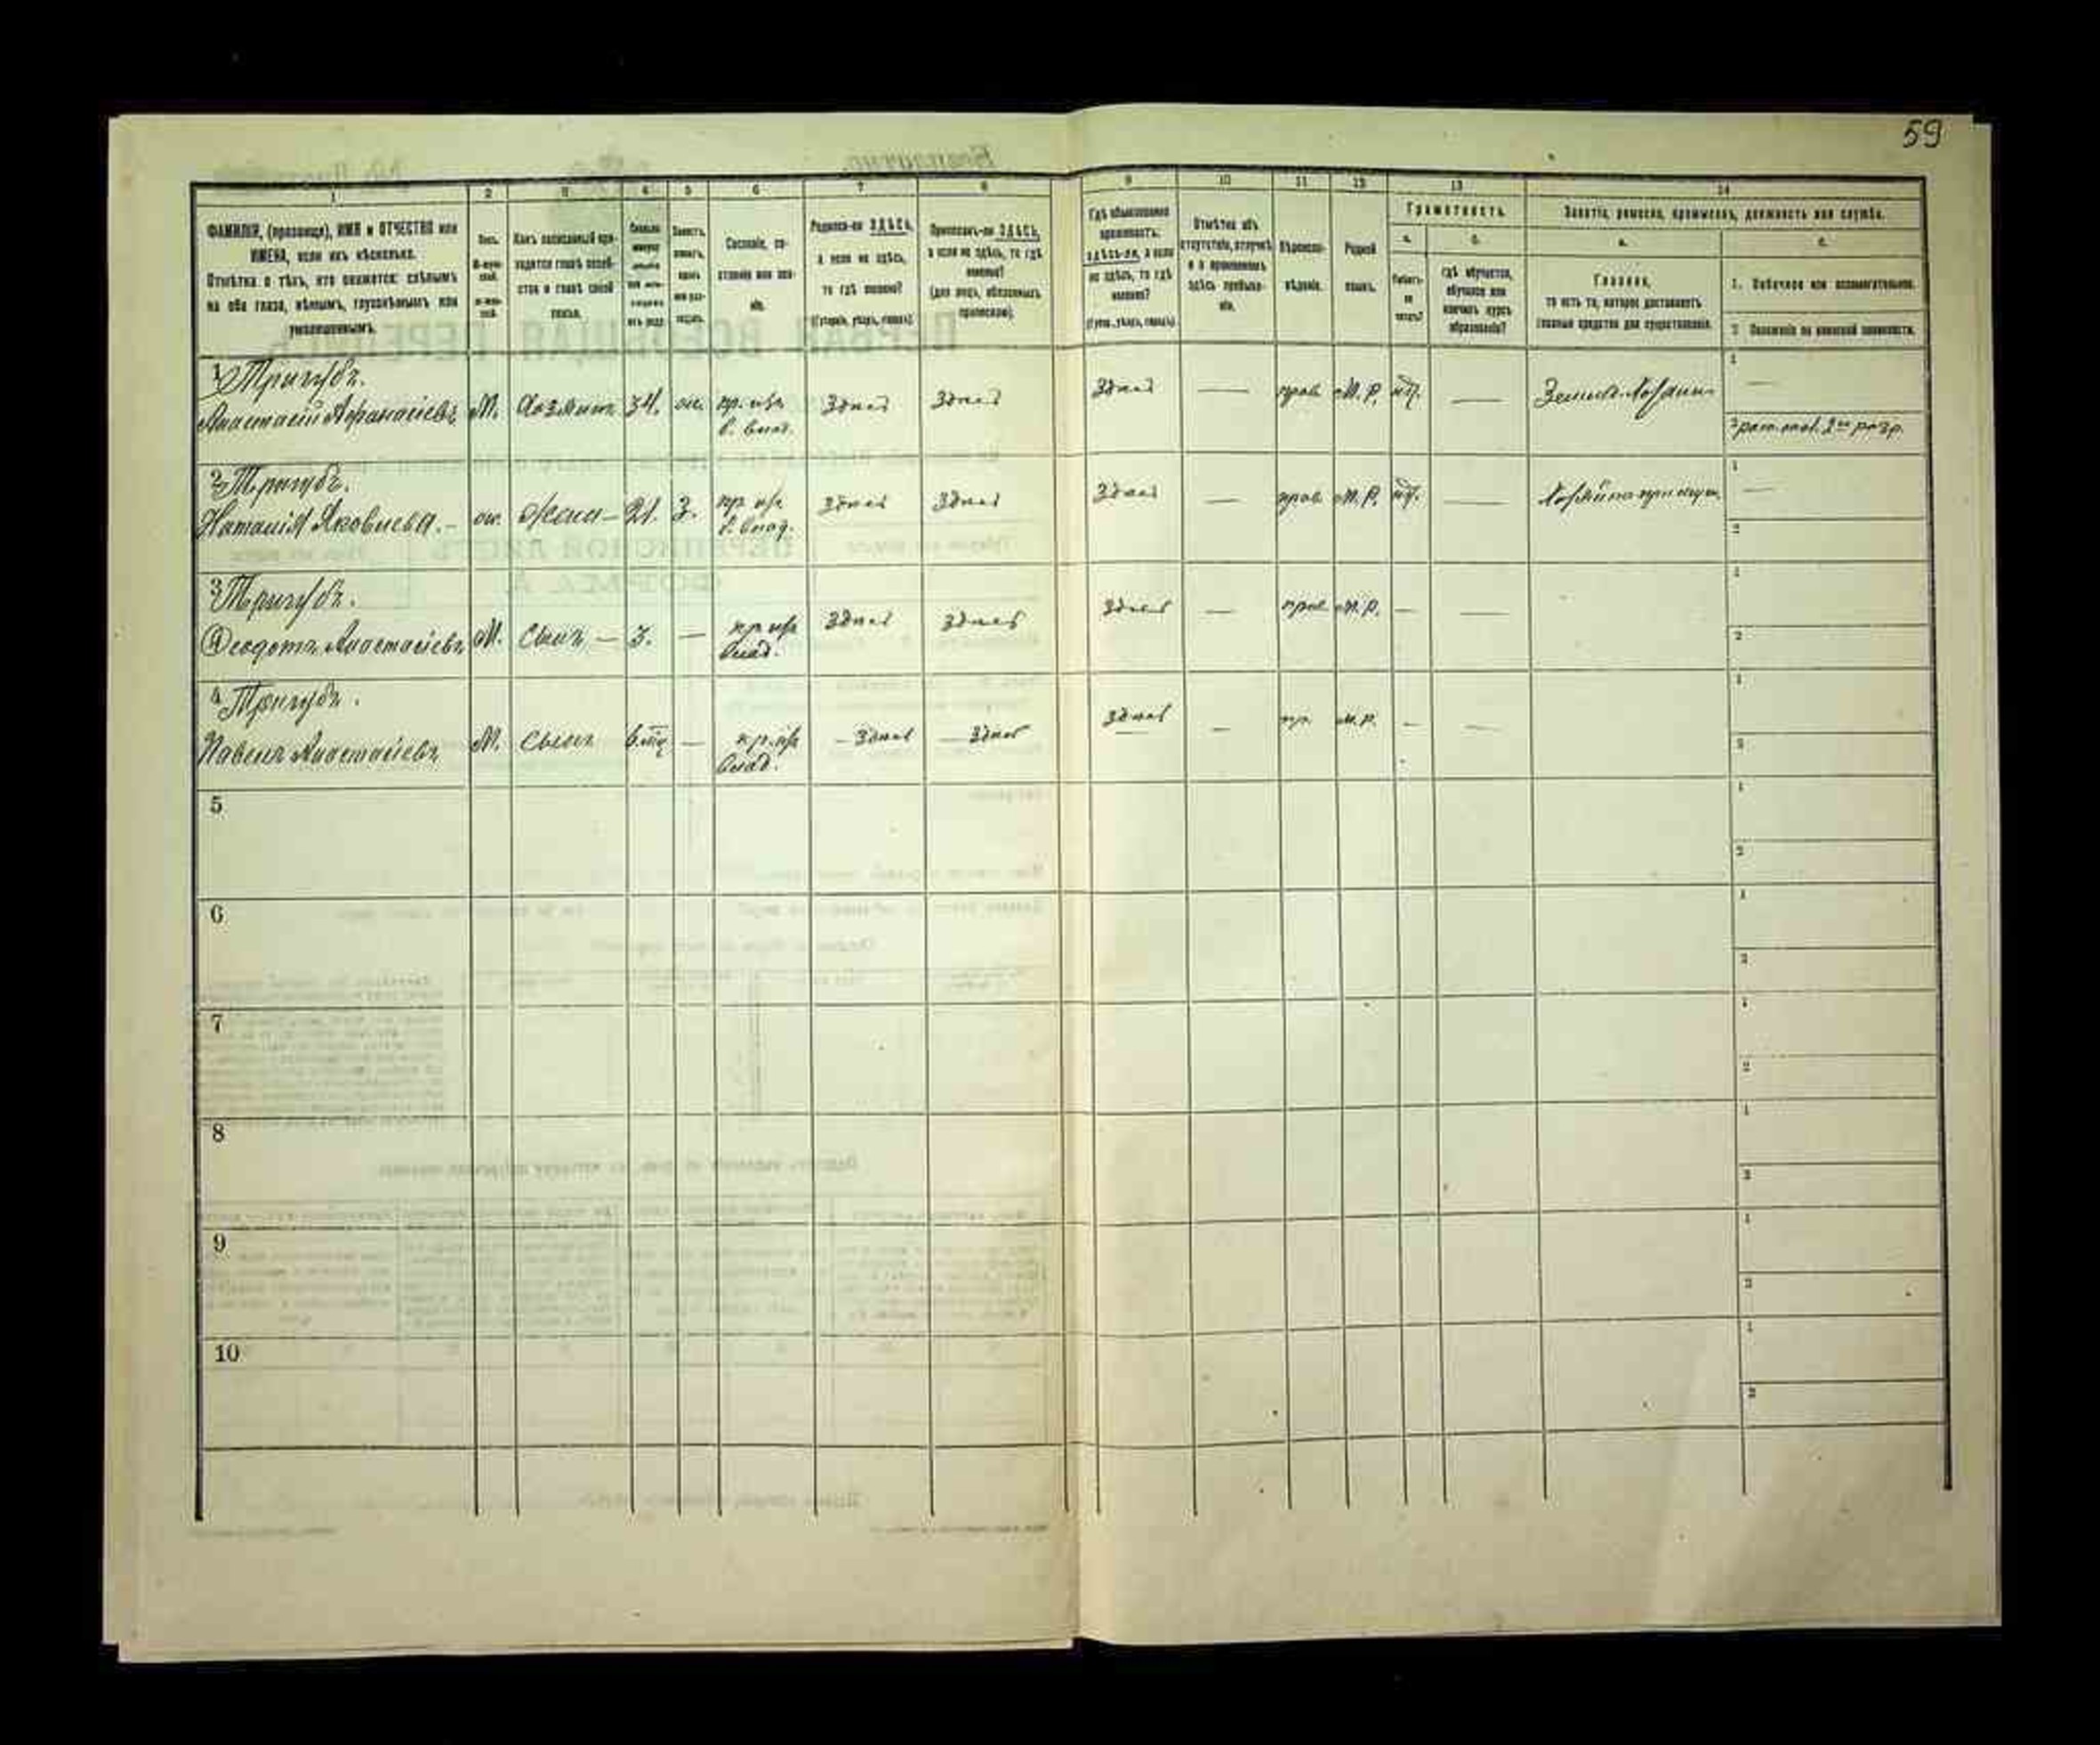 59
1 2 3 4 5 6 7 8 9 10 11 12 13 14
ФАМИЛІЯ, (прозвище), ИМЯ и ОТЧЕСТВО или
ИМЕНА, если ихъ нѣсколько.
Отмѣтка о тѣхъ, кто окажется: слѣпымъ
на оба глаза, нѣмымъ, глухонѣмымъ или
умалишеннымъ.
Полъ.
М-муж-
ской.
ж-жен-
ской.
Какъ записанный при-
ходится главѣ хозяй-
ства и главѣ своей
семьи.
Сколько
минуло
лѣтъ
или мѣ-
сяцевъ
отъ роду
Холостъ,
женатъ,
вдовъ
или раз-
веденъ.
Сословіе, со-
стояніе или зва-
ніе.
Родился-ли ЗДѢСЬ,
а если не здѣсь,
то гдѣ именно?
(Губернія, уѣздъ, городъ).
Приписанъ-ли ЗДѢСЬ,
а если не здѣсь, то гдѣ
именно?
(для лицъ, обязанныхъ
припискою).
Гдѣ обыкновенно
проживаетъ:
здѣсь-ли, а если
не здѣсь, то гдѣ
именно?
(Губ., уѣздъ, городъ)
Отмѣтка объ
отсутствіи, отлучкѣ
и о временномъ
здѣсь пребыва-
ніи.
Вѣроиспо-
вѣданіе.
Родной
языкъ.
Грамотность.
а. б.
Умѣетъ-
ли
читать?
гдѣ обучается,
обучался или
кончилъ курсъ
образованія?
Занятіе, ремесло, промыселъ, должность или служба.
а. б.
Главное,
то есть то, которое доставляетъ
главныя средства для существованія.
1. Побочное или вспомогательное.
2 Положеніе по воинской повинности.
1 Тригубъ.
Анастасій Афанасіевъ М. Хозяинъ 34. ж. кр. изъ
б. влад. Здѣсь Здѣсь Здѣсь — прав. М. Р. нѣт. — Землед. Хозяин 1 —
2 рат. опол. 2го разр.
2 Тригубъ.
Наталія Яковлева. ж. жена 21. З. кр. из
б. влад. Здѣсь Здѣсь Здѣсь — прав. М. Р. нѣт. — Хозяйка при муж. 1 —
2
3 Тригубъ.
Ѳеодотъ Анастасіевъ М. сынъ — 3. — кр. из
влад. Здѣсь Здѣсь Здѣсь — прав. М. Р. — — 1
2
4 Тригубъ.
Павелъ Анастасіевъ М. сынъ — кр. из
влад. Здѣсь Здѣсь Здѣсь — пр. М. Р. — — 1
2
5 1
2
6 1
2
7 1
2
8 1
2
9 1
2
10 1
2